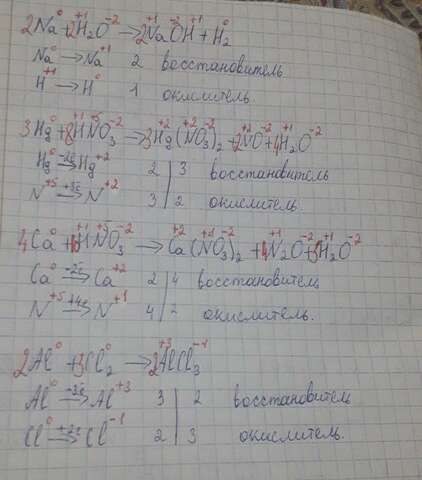 2Na⁰ + 2H₂⁺¹O⁻² → 2Na⁺¹O⁻²H⁺¹ + H₂⁰
Na⁰ → Na⁺¹ 2 восстановитель
H⁺¹ → H⁰ 1 окислитель
3Hg⁰ + 8H⁺¹N⁺⁵O₃⁻² → 3Hg⁺²(NO₃)₂ + 2N⁺²O⁻² + 4H₂⁺¹O⁻²
Hg⁰ –2e→ Hg⁺² 2 | 3 восстановитель
N⁺⁵ +3e→ N⁺² 3 | 2 окислитель.
4Ca⁰ + 10H⁺¹N⁺⁵O₃⁻² → Ca⁺²(NO₃)₂ + N₂O⁻² + 5H₂⁺¹O⁻²
Ca⁰ –2e→ Ca⁺² 2 | 4 восстановитель
N⁺⁵ +4e→ N⁺¹ 4 | 2 окислитель.
2Al⁰ + 3Cl₂⁰ → 2Al⁺³Cl₃⁻¹
Al⁰ –3e→ Al⁺³ 3 | 2 восстановитель
Cl⁰ → Cl⁻¹ 2 | 3 окислитель.